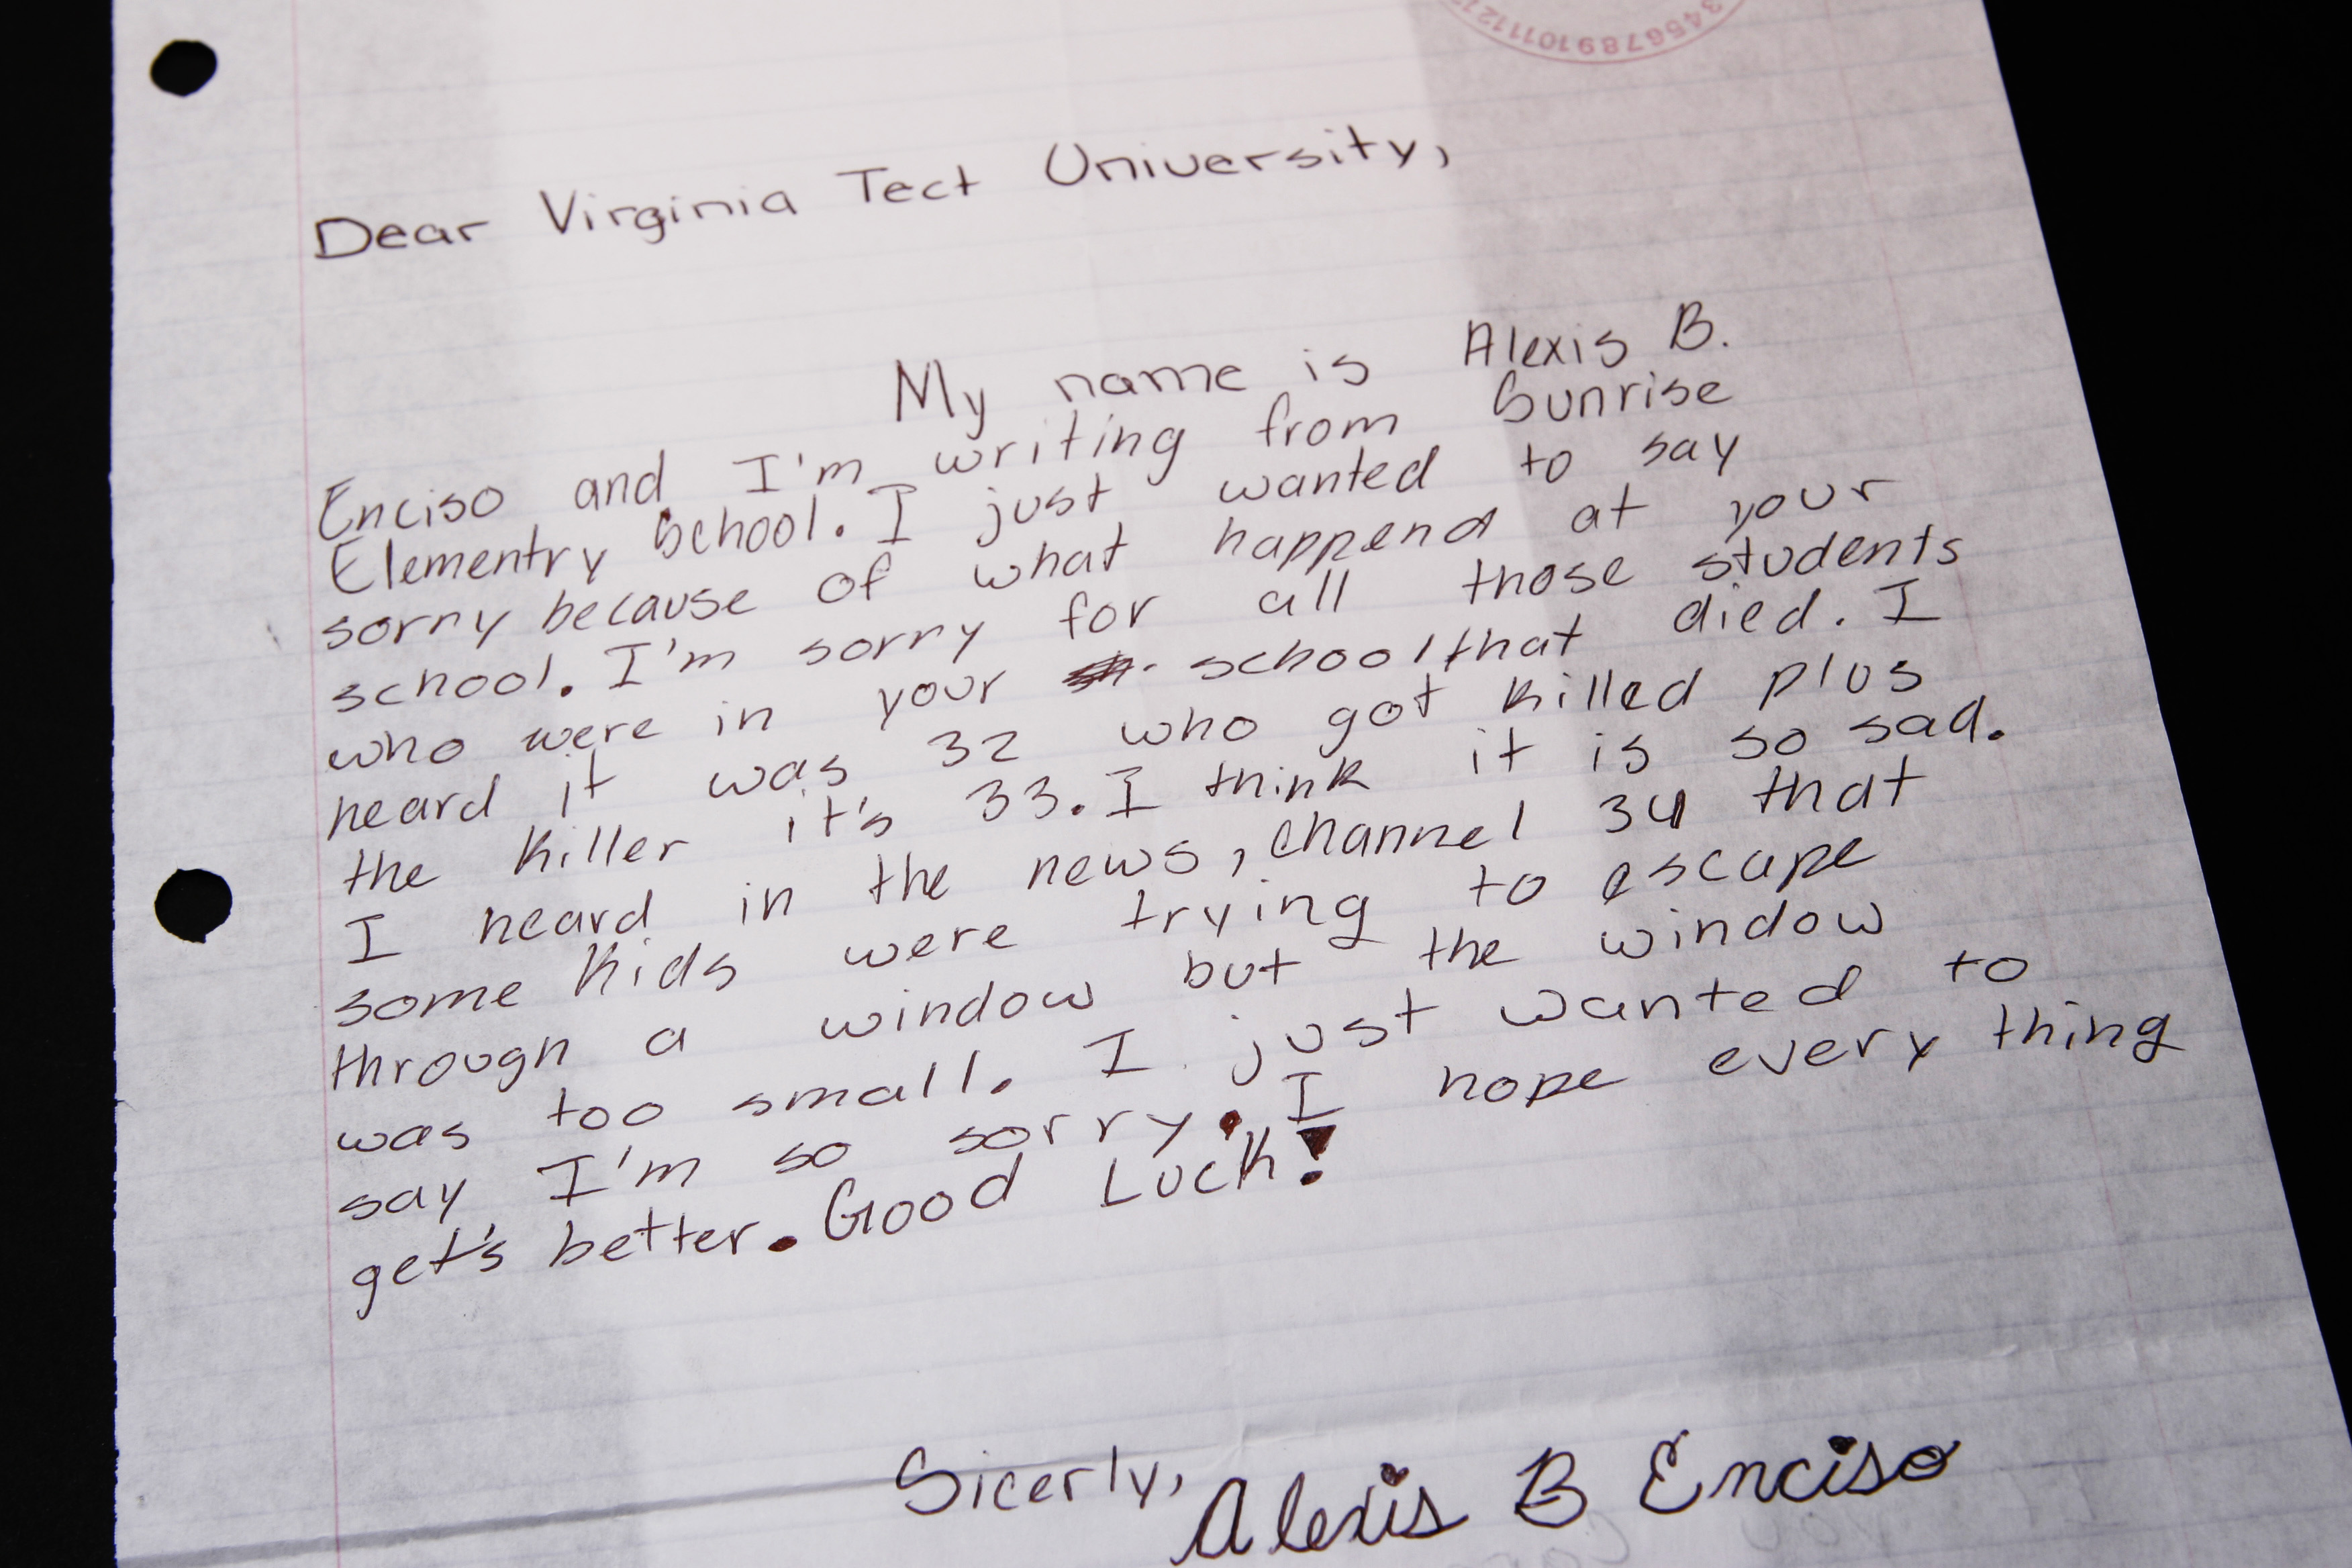 34567891011121
Dear Virginia Tect University,
My name is Alexis B.
Enciso and I'm writing from Sunrise
Elementry School. I just wanted to say
sorry because of what happend at your
school. I'm sorry for all those students
who were in your school that died. I
heard it was 32 who got killed plus
the killer it's 33. I think it is so sad.
I heard in the news, channel 34 that
some kids were trying to escape
through a window but the window
was too small. I just wanted to
say I'm so sorry. I hope every thing
get's better. Good Luck!
Sicerly, Alexis B Enciso